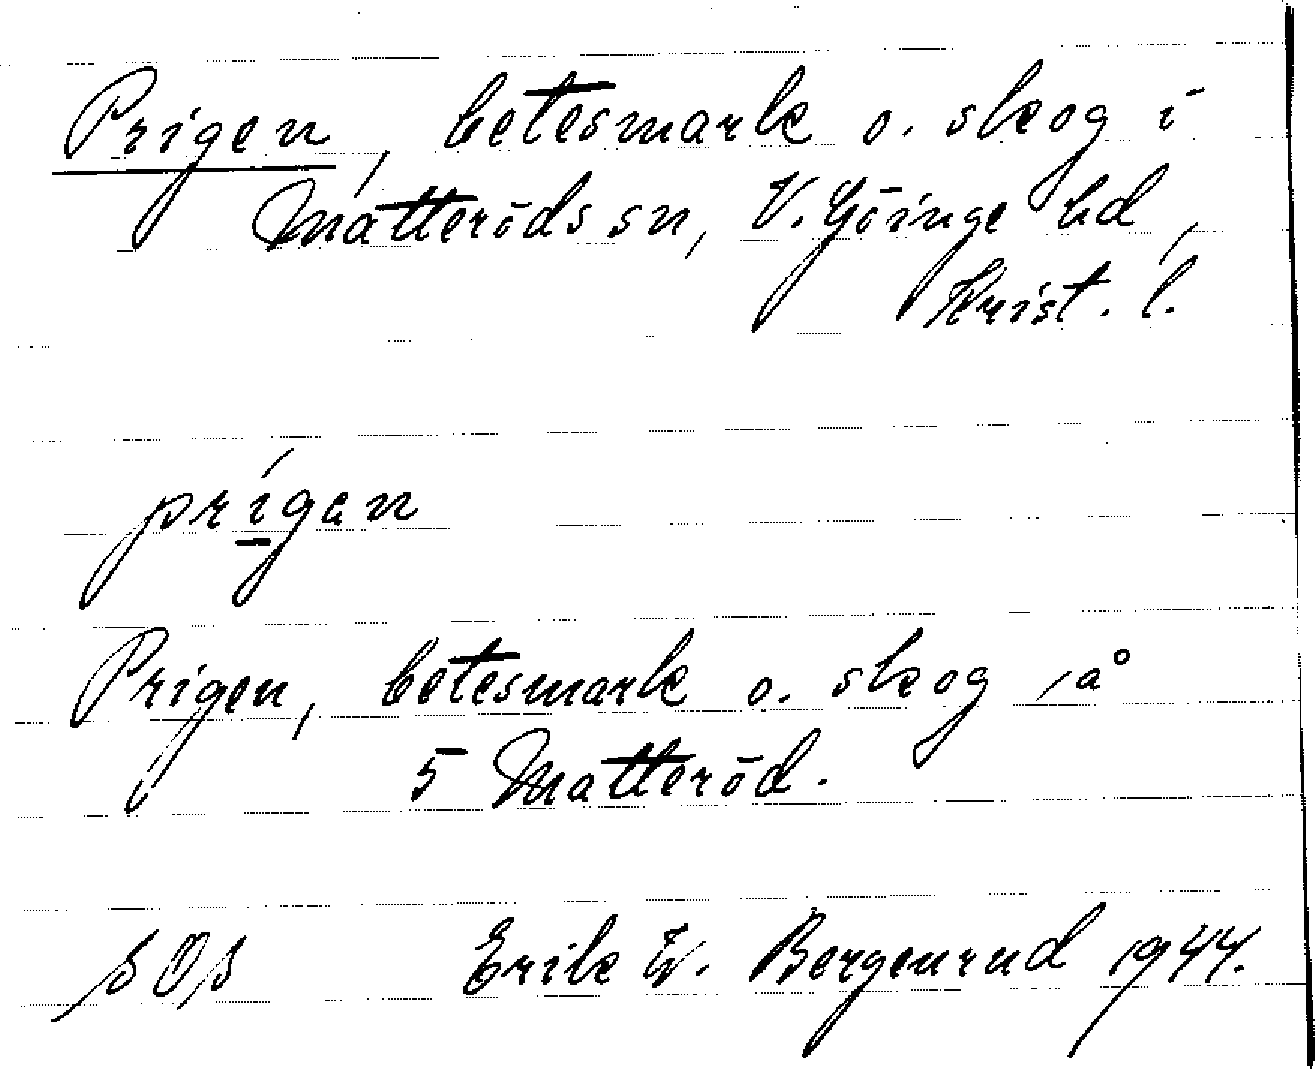 Prigen, betesmark o. skog i
Matteröds sn, V. Göinge hd,
Krist. l.
prígan
Prigen, betesmark o. skog på
5 Matteröd.
Erik W. Bergenrud 1944.